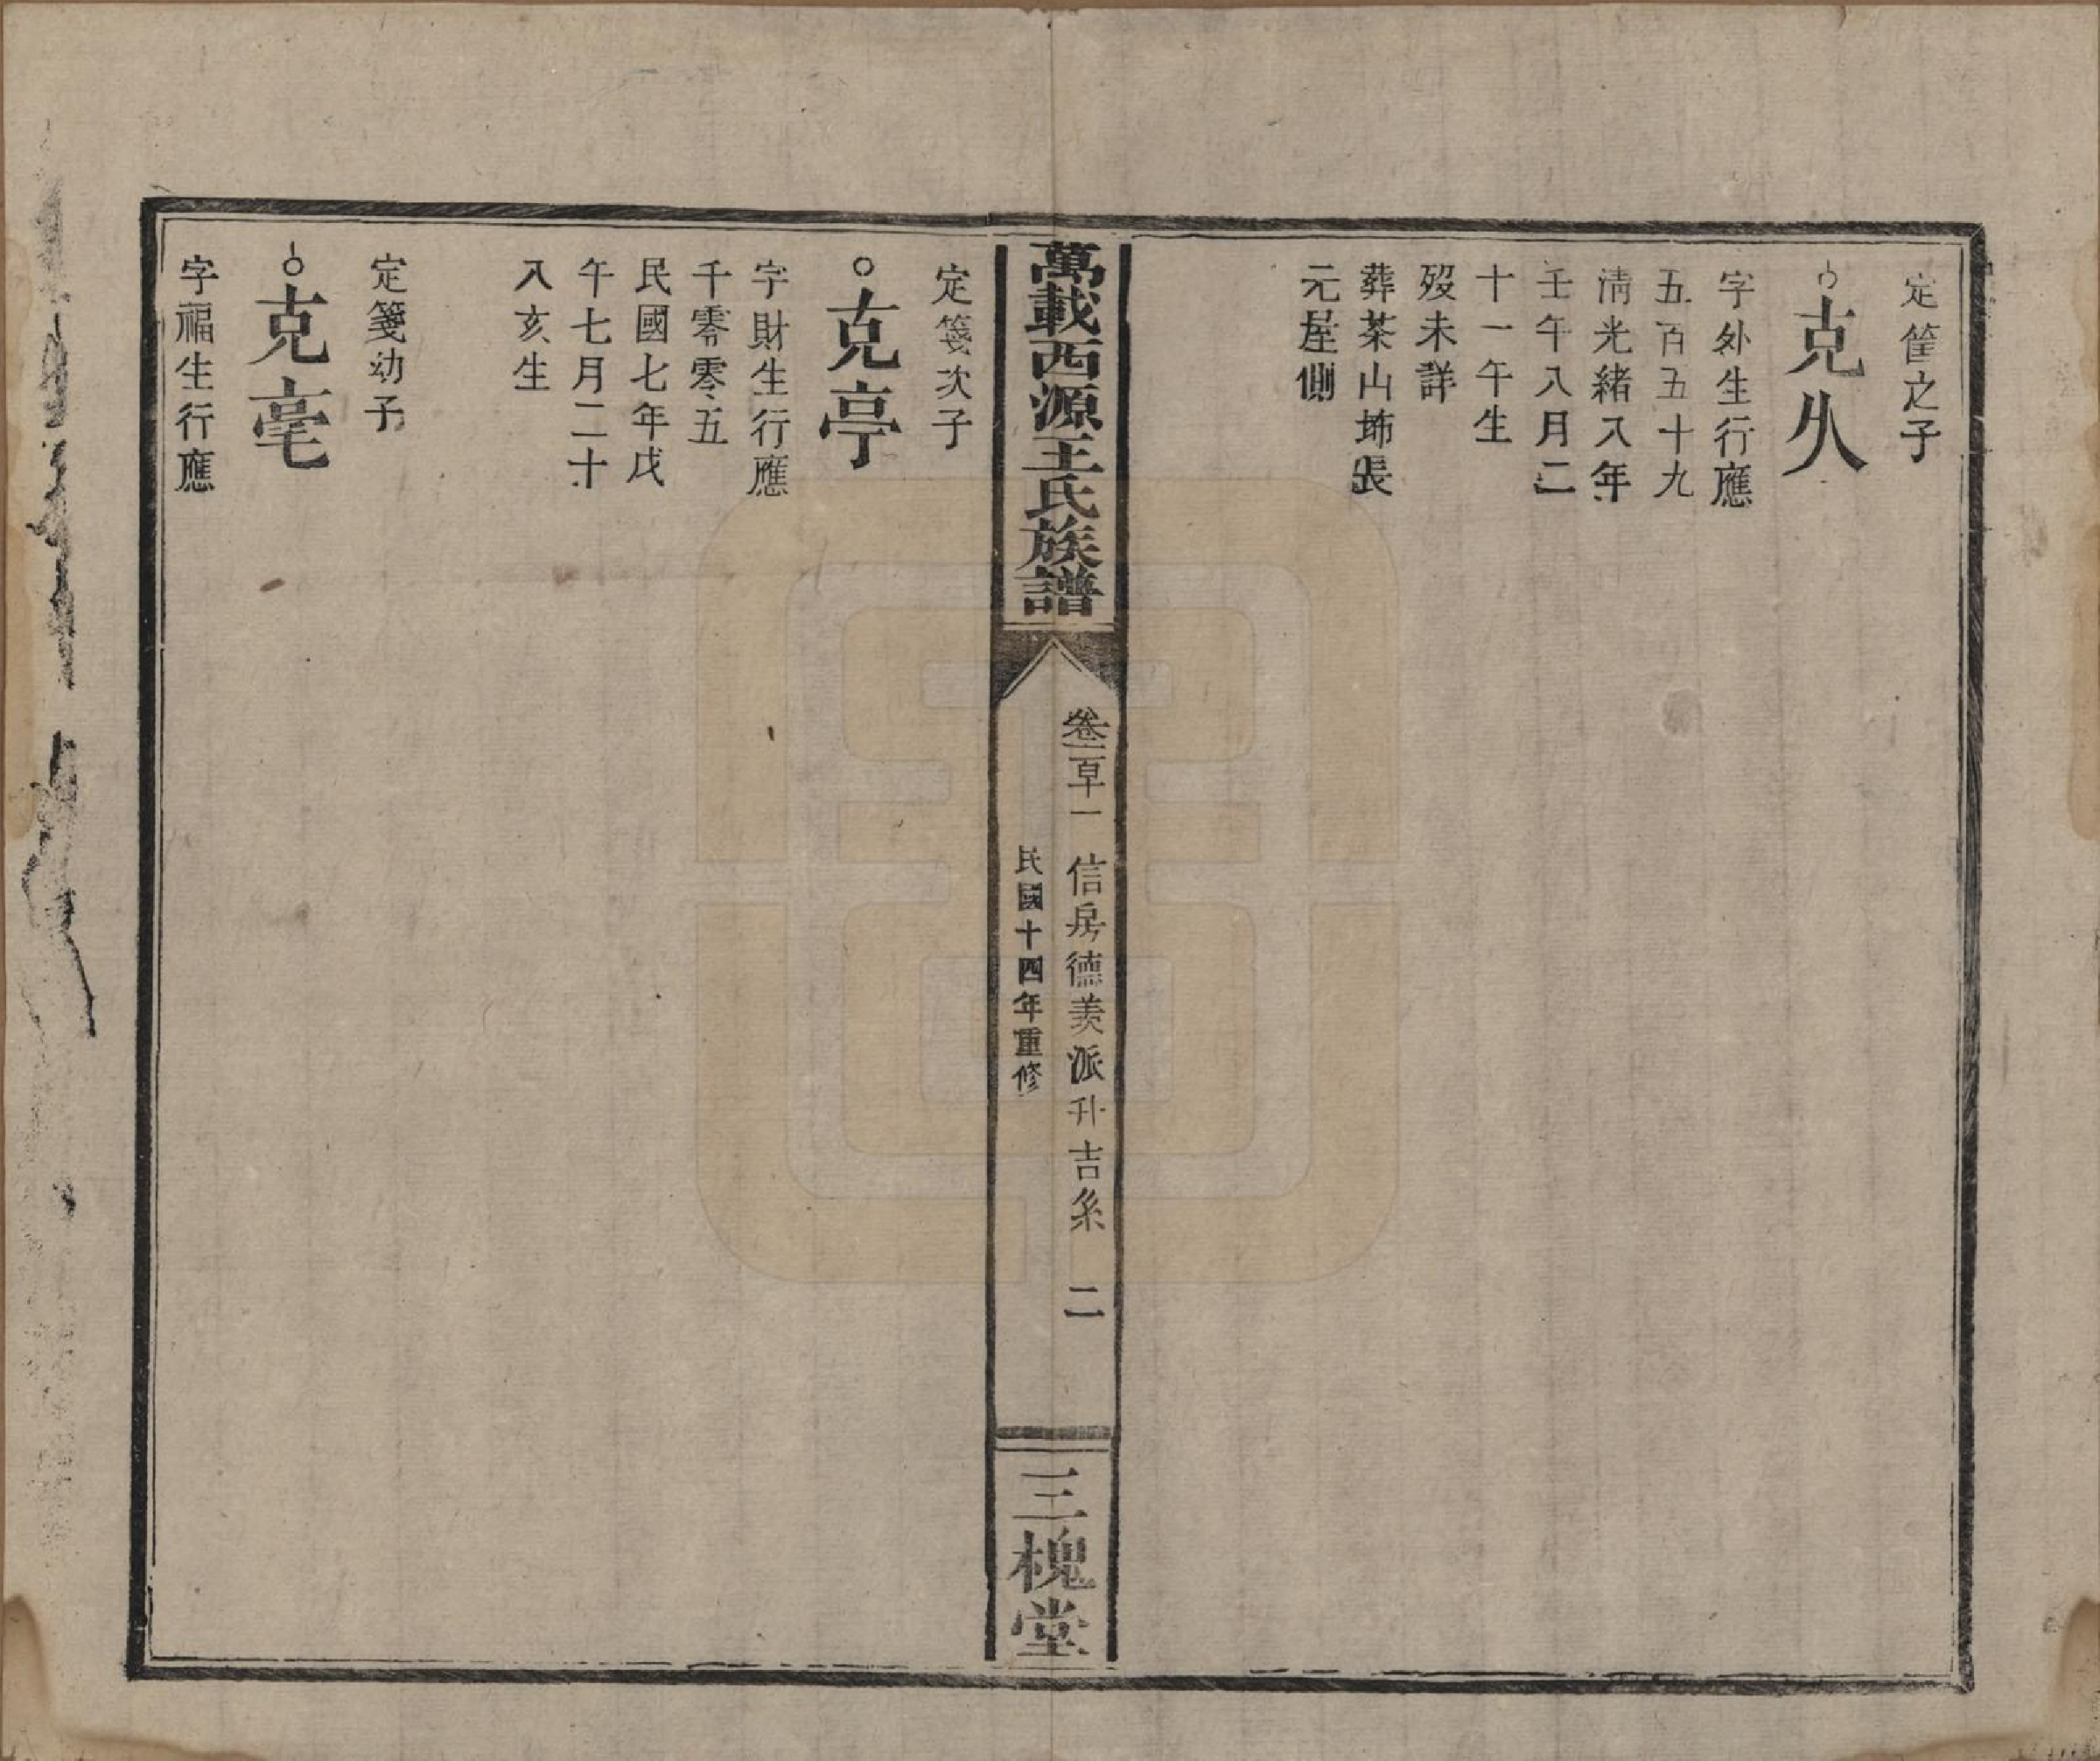 定筐之子
克久
字外生行應
五百五十九
清光緒八年
壬午八月二
十一午生
歿未詳
葬茶山㘵長
元屋側
萬載西源王氏族譜
卷一百一 信房德美派升吉系 二
民國十四年重修
三槐堂
定箋次子
克亭
字財生行應
千零零五
民國七年戊
午七月二十
八亥生
定箋幼子
克亳
字福生行應